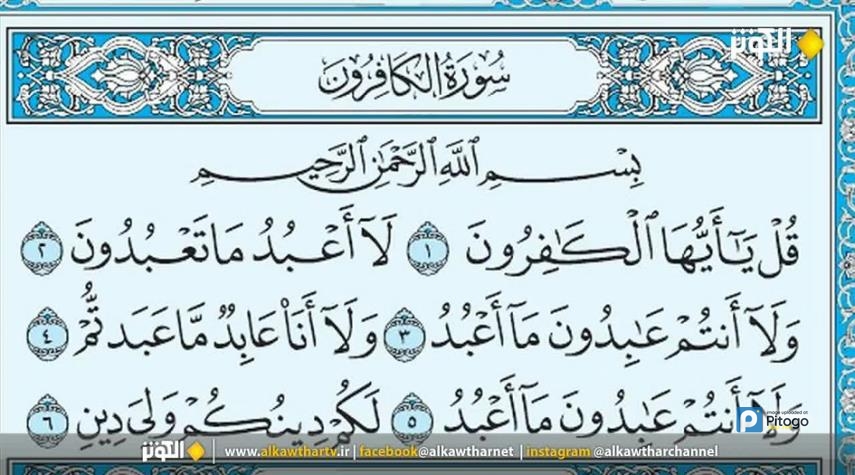 الكوثر
سُورَةُ الكَافِرُونَ
بِسْمِ اللَّهِ الرَّحْمَٰنِ الرَّحِيمِ
قُلْ يَٰٓأَيُّهَا ٱلْكَٰفِرُونَ ١ لَآ أَعْبُدُ مَا تَعْبُدُونَ ٢
وَلَآ أَنتُمْ عَٰبِدُونَ مَآ أَعْبُدُ ٣ وَلَآ أَنَا۠ عَابِدٌ مَّا عَبَدتُّمْ ٤
وَلَآ أَنتُمْ عَٰبِدُونَ مَآ أَعْبُدُ ٥ لَكُمْ دِينُكُمْ وَلِيَ دِينِ ٦
Image uploaded at
Pitogo
الكوثر www.alkawthartv.ir | facebook@alkawtharnet | instagram @alkawtharchannel